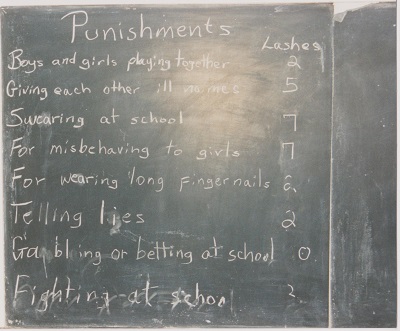 Punishments
Lashes
Boys and girls playing together 2
Giving each other ill names 5
Swearing at school 7
For misbehaving to girls 7
For wearing long fingernails 2
Telling lies 2
Gambling or betting at school 0
Fighting at school